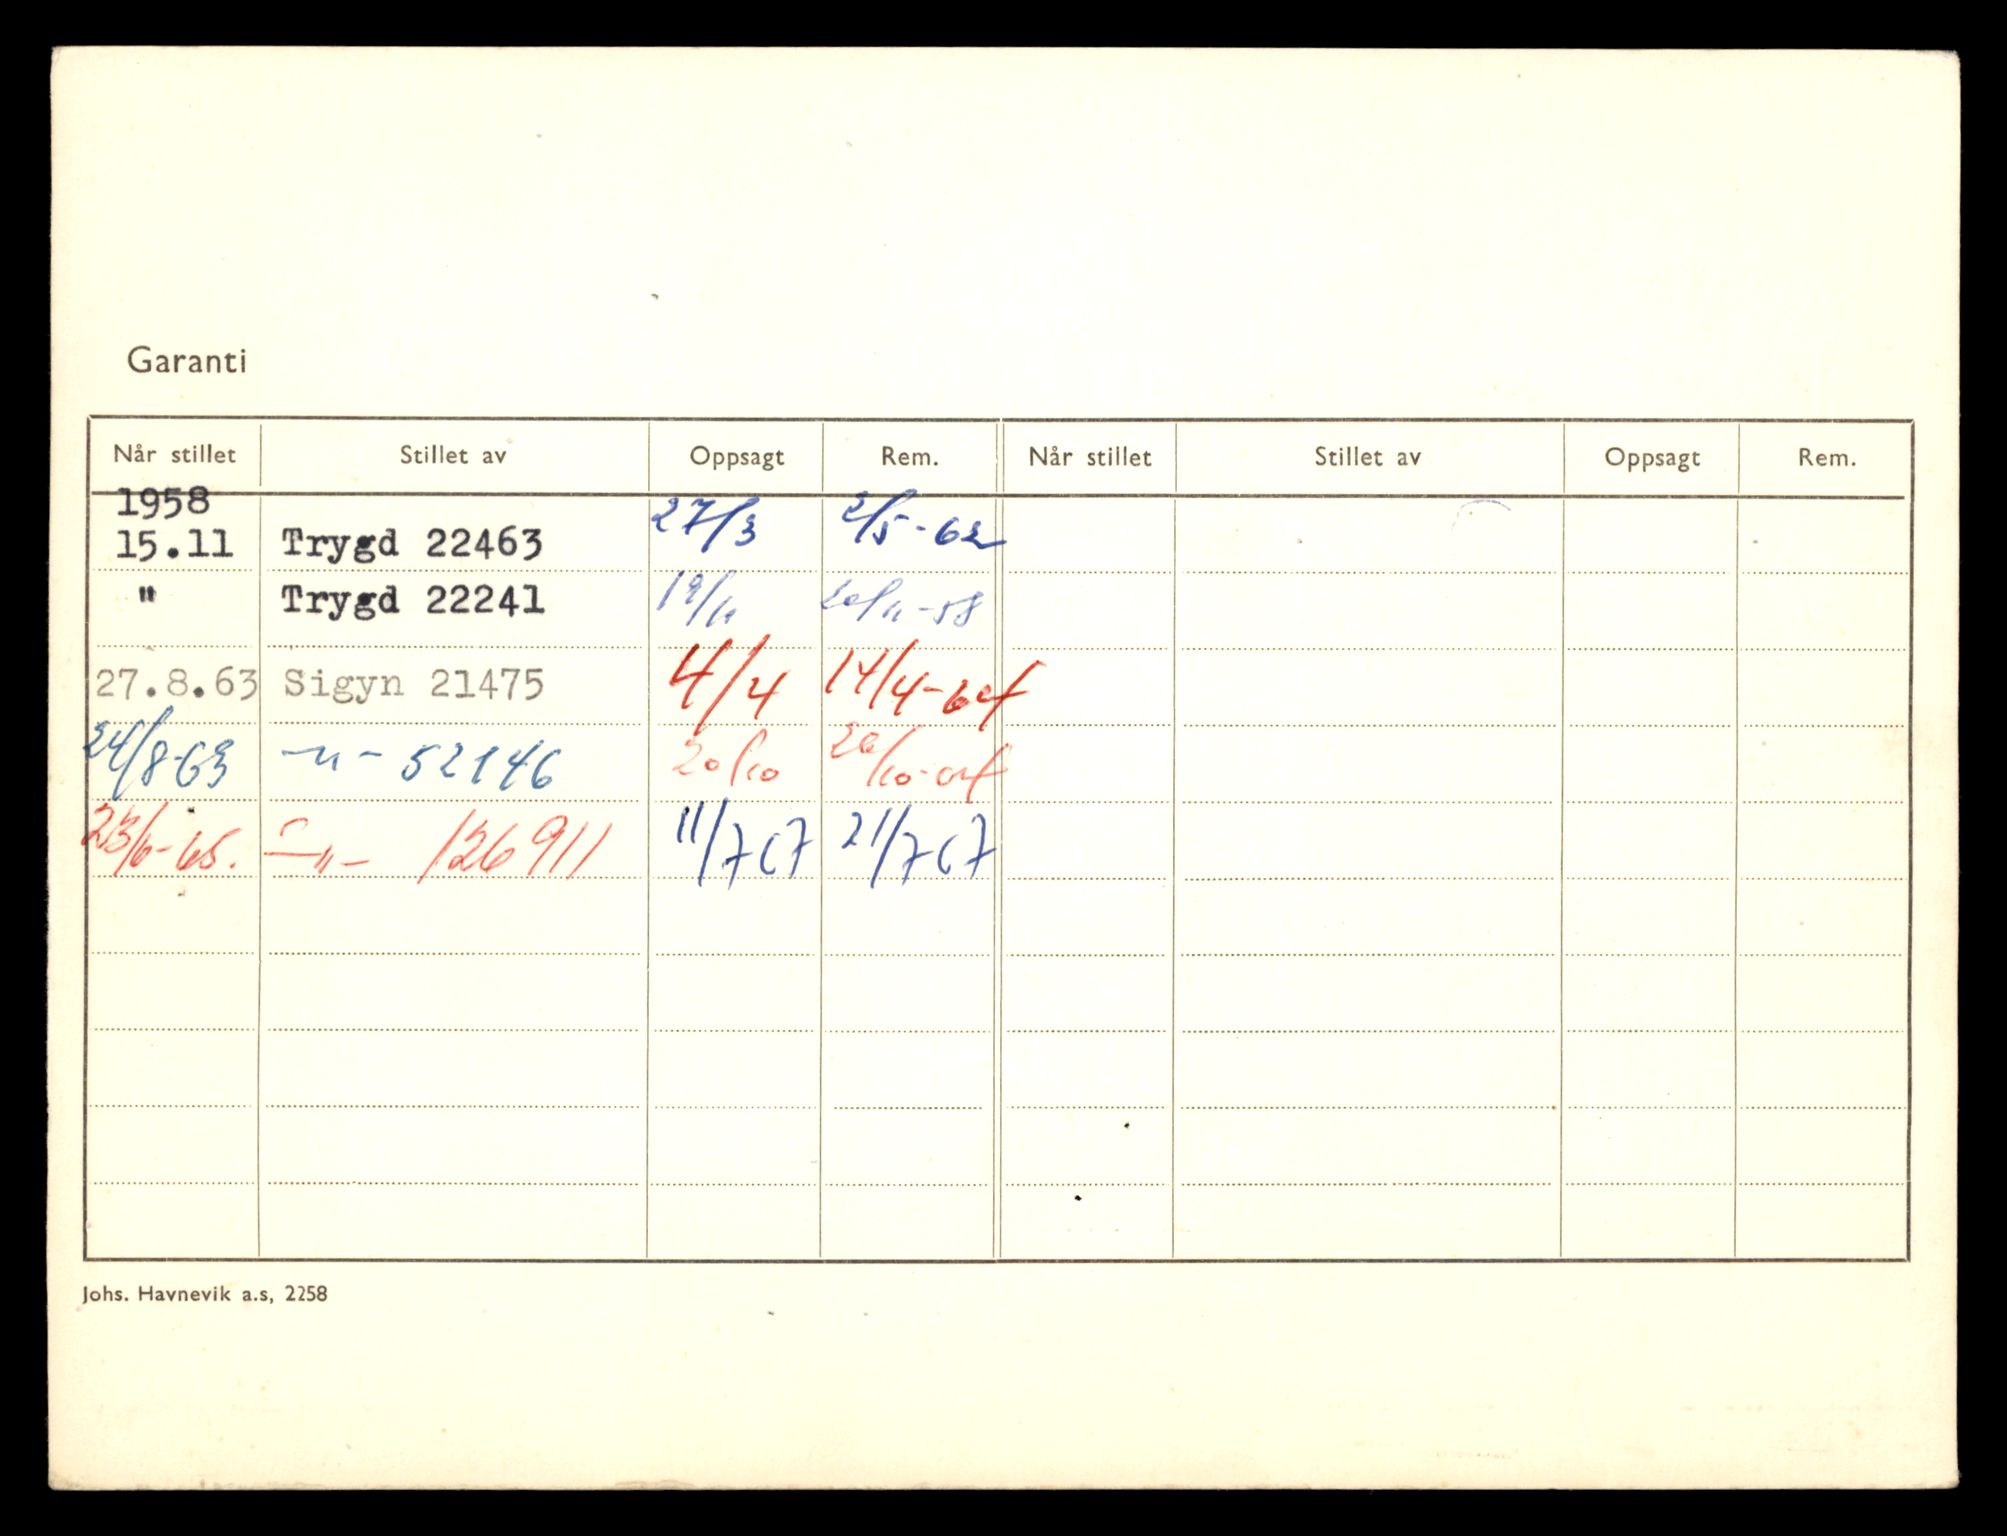 Garanti
Når stillet Stillet av Oppsagt Rem. Når stillet Stillet av Oppsagt Rem.
1958
15.11 Trygd 22463 27/3 2/5-62
" Trygd 22241 19/11 20/11-58
27.8.63 Sigyn 21475 4/4 14/4-64
24/8-63 -"- 52146 20/10 20/10-64
23/6-65. -"- 126911 11/767 21/767
Johs. Havnevik a.s, 2258